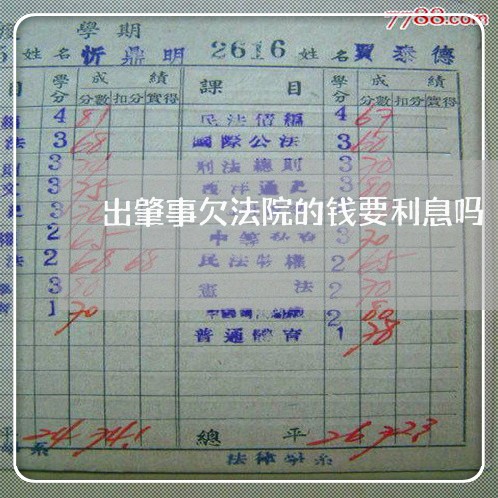 7788.com
學期
姓名 忻鼎明 2616 姓名 賈泰德
目 學分 成績 課目 學分 成績
分數 扣分 實得 分數 扣分 實得
4 81 民法債編 4 67
法 3 68 國際公法 3 60
3 刑法總則 3 70
3 75 西洋通史 3 80
出肇事欠法院的钱要利息吗
2 65 3 70
法 2 68 68 民法物權 2 65
3 80 憲法 2 70
1 70 2 80
普通體育 1 78
平 24 74.1 總平 26 72.3
系 法律學系